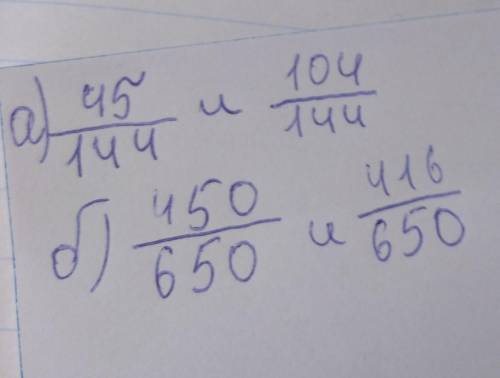 а) 45/144 и 104/144
б) 450/650 и 416/650